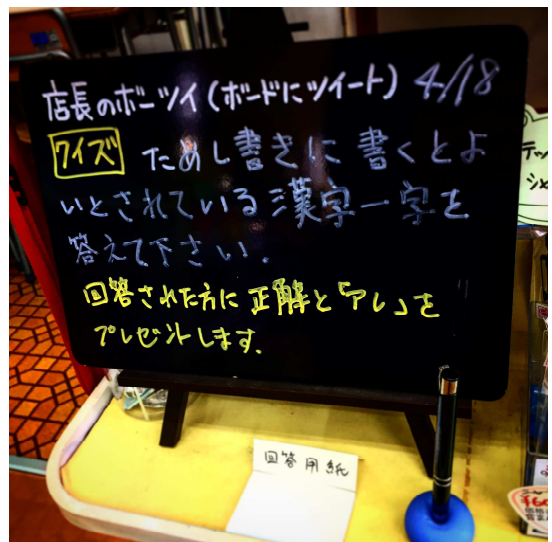 店長のボーツイ(ボードにツイート) 4/18
クイズ ためし書きに書くとよ
いとされている漢字一字を
答えて下さい.
回答された方に正解と「アレ」を
プレゼントします.
回答用紙